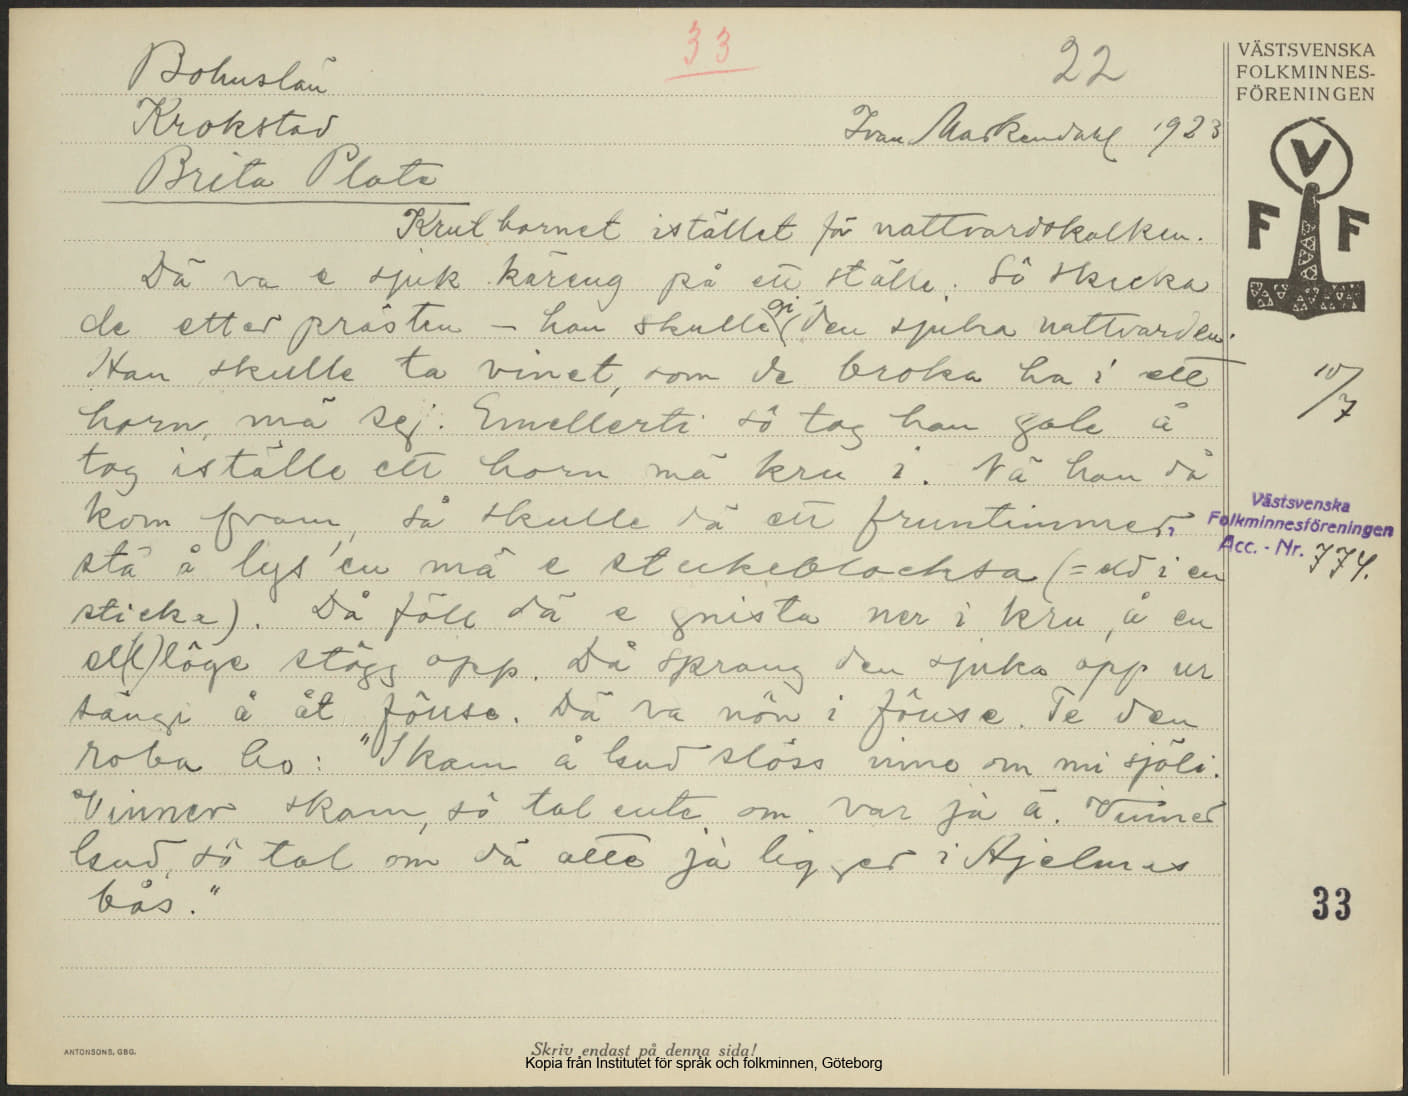 33
22
VÄSTSVENSKA
FOLKMINNES-
FÖRENINGEN
Bohuslän
Krokstad
Ivan Markendahl 1923
Brita Plate
V
F F
Kruthornet istället för nattvardskalken.
Dä va e sjuk käreng på ett ställe. Så skecka
de etter prästen – han skulle gi den sjuka nattvarden.
Han skulle ta vinet, som de broka ha i ett
10/7
horn, mä sej. Emellerti så tog han gale å
tog iställe ett horn mä kru i. Nä han då
kom fram, så skulle dä ett fruntimmer
Västsvenska
Folkminnesföreningen
Acc. - Nr. 774.
stå å lys'en mä e stekeblocksa (= eld i en
sticka). Då föll dä e gnista ner i kru, å en
el(l)löge stögg opp. Då sprang den sjuka opp ur
sängi å åt fönse. Dä va nön i fönse. Te den
roba ho: "Skam å Gud slöss inne om mi själi.
Vinner skam, så tal ente om var jä ä. Vinner
Gud, så tal om dä atte jä ligger i Hjelmas
bås."
33
ANTONSONS, GBG.
Skriv endast på denna sida!
Kopia från Institutet för språk och folkminnen, Göteborg